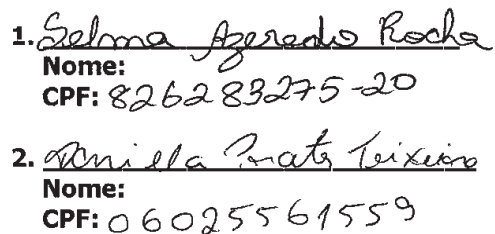 1. Selma Azeredo Rocha
Nome:
CPF: 826283275-20
2. Daniella Prates Teixeira
Nome:
CPF: 06025561559